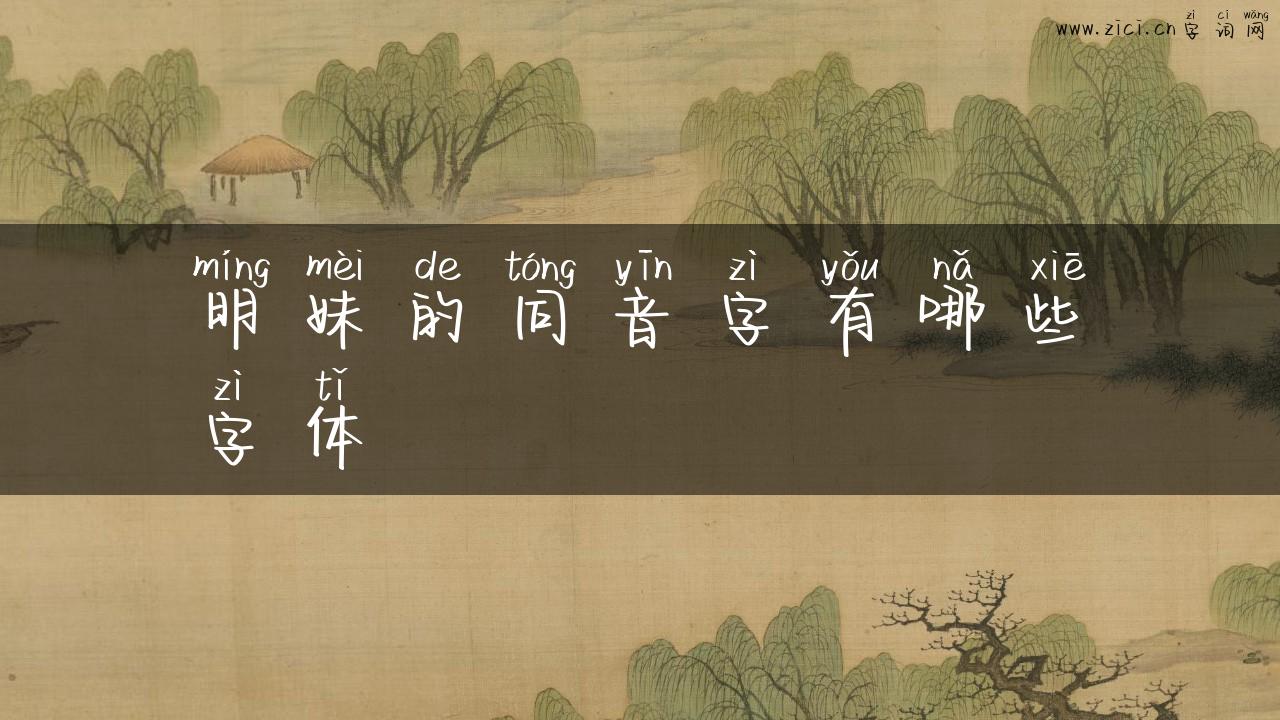 zì cí wǎng
www.zici.cn 字 词 网
míng mèi de tóng yīn zì yǒu nǎ xiē
明 妹 的 同 音 字 有 哪 些
zì tǐ
字 体